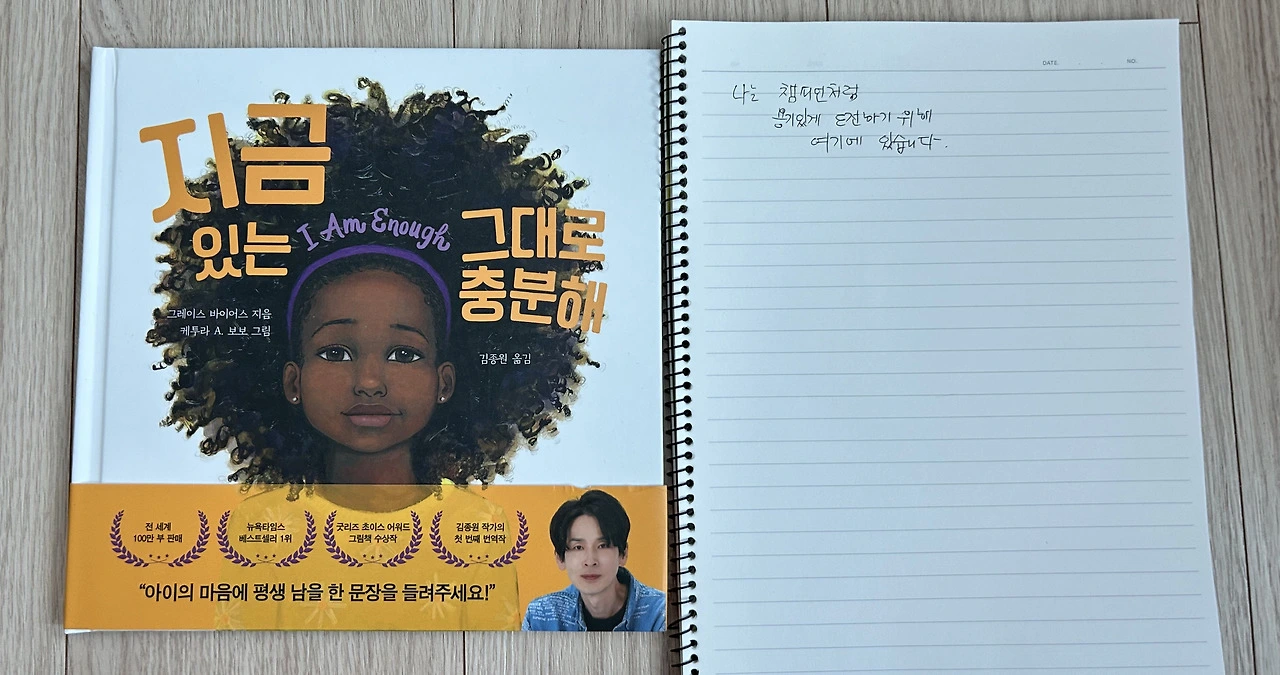 지금
있는
I Am Enough
그대로
충분해
그레이스 바이어스 지음
케투라 A. 보보 그림
김종원 옮김
전 세계
100만 부 판매
뉴욕타임스
베스트셀러 1위
굿리즈 초이스 어워드
그림책 수상작
김종원 작가의
첫 번째 번역작
“아이의 마음에 평생 남을 한 문장을 들려주세요!”
DATE. . . NO.
나는 챔피언처럼
용기있게 도전하기 위해
여기에 있습니다.